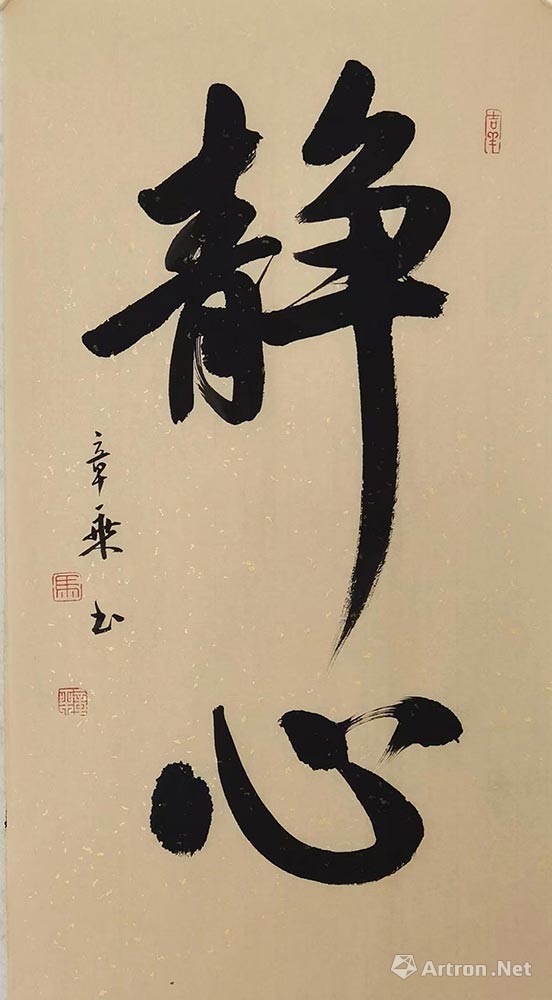 静心
章乘书
吉羊
马
Artron.Net